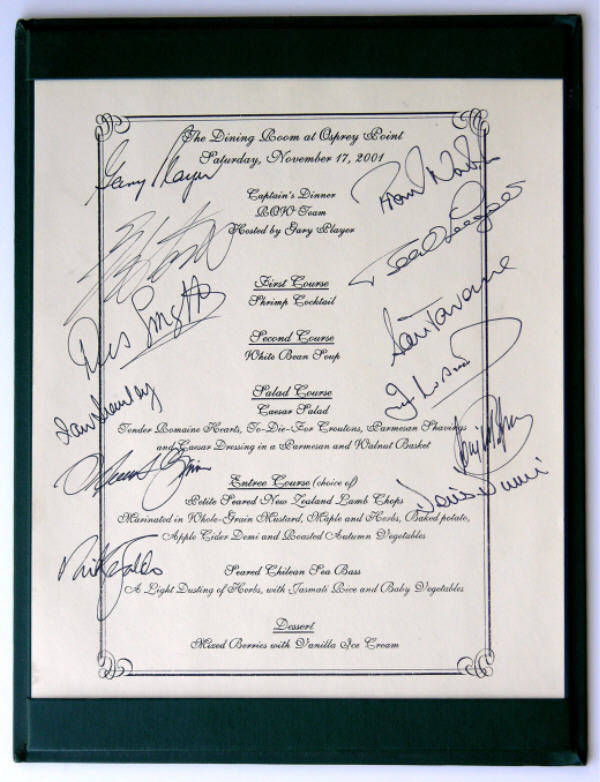 The Dining Room at Osprey Point
Saturday, November 17, 2001
Gary Player
Captain's Dinner
ROW Team
Hosted by Gary Player
First Course
Shrimp Cocktail
Des Smyth
Second Course
White Bean Soup
Sam Torrance
Salad Course
Caesar Salad
Ian Stanley
Tender Romaine Hearts, To-Die-For Croutons, Parmesan Shavings
and Caesar Dressing in a Parmesan and Walnut Basket
Entree Course (choice of)
Petite Seared New Zealand Lamb Chops
Marinated in Whole-Grain Mustard, Maple and Herbs, Baked potato,
Apple Cider Demi and Roasted Autumn Vegetables
Nick Faldo
Seared Chilean Sea Bass
A Light Dusting of Herbs, with Jasmati Rice and Baby Vegetables
Dessert
Mixed Berries with Vanilla Ice Cream